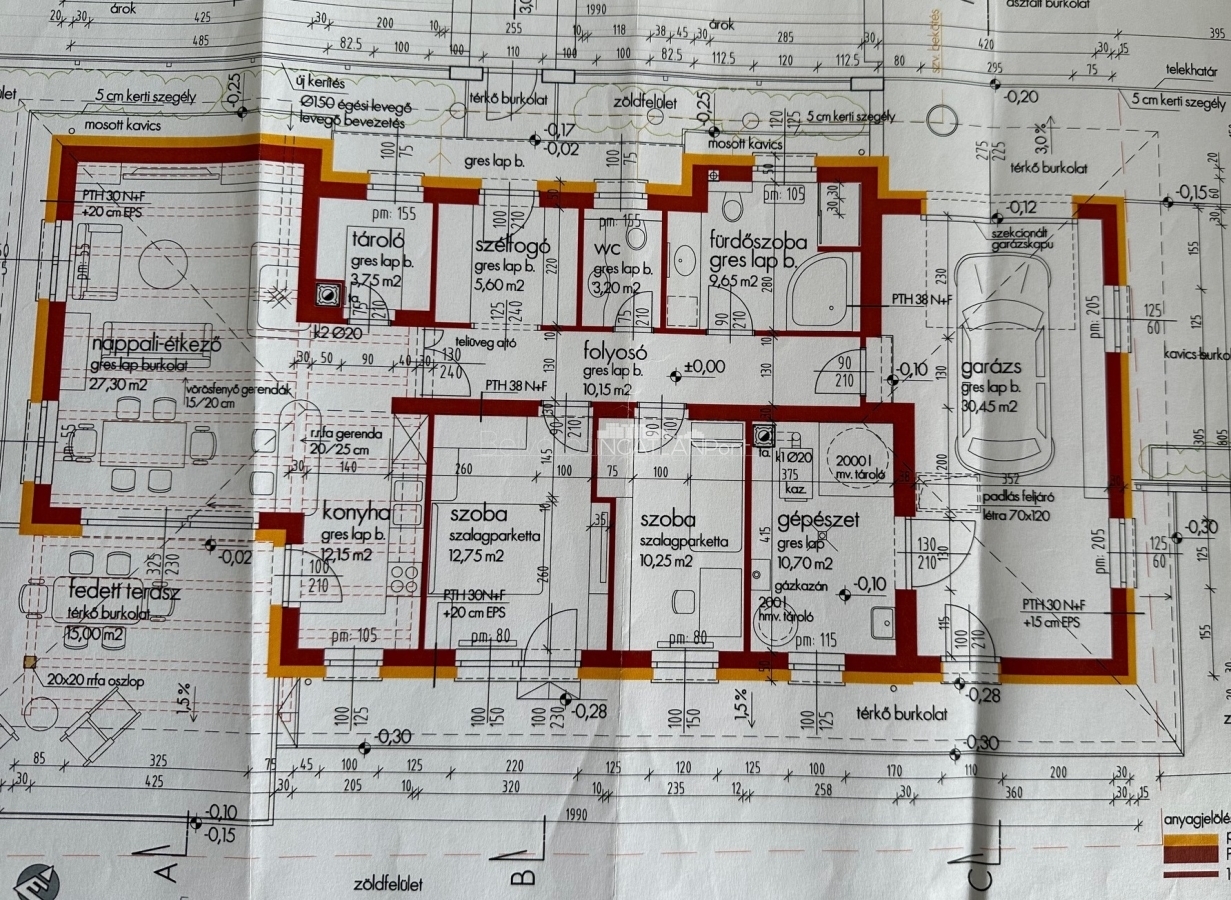 árok
1990
árok
aszfalt burkolat
20
30
425
30
200
10
255
10
118
38
45
30
285
30
420
395
485
82.5
100
100
110
100
100
82.5
112.5
120
112.5
80
295
30
15
75
telekhatár
szv. bekötés
új kerítés
-0,25
5 cm kerti szegély
Ø150 égési levegő
levegő bevezetés
térkő burkolat
zöldfelület
-0,25
-0,20
5 cm kerti szegély
5 cm kerti szegély
mosott kavics
-0,17
-0,02
mosott kavics
3,0%
térkő burkolat
gres lap b.
100
75
100
75
120
125
275
225
-0,15
PTH 30 N+F
+20 cm EPS
pm: 155
100
210
pm: 155
pm: 105
-0,12
szekcionált
garázskapu
tároló
gres lap b.
3,75 m2
szélfogó
gres lap b.
5,60 m2
wc
gres lap b.
3,20 m2
fürdőszoba
gres lap b.
9,65 m2
220
280
230
PTH 38 N+F
pm: 205
125
60
pm: 55
ta.
75
210
k2 Ø20
125
240
75
210
90
210
nappali-étkező
gres lap burkolat
27,30 m2
vörösfenyő gerendák
15/20 cm
30
50
90
40
30
130
240
teliüveg ajtó
PTH 38 N+F
130
folyosó
gres lap b.
10,15 m2
±0,00
130
90
210
-0,10
130
garázs
gres lap b.
30,45 m2
kavics burkolat
pm: 55
r.rfa gerenda
20/25 cm
30
140
260
90
210
145
100
75
90
210
100
ta.
k1 Ø20
375
kaz.
2000 l
mv. tároló
200
352
padlás feljáró
létra 70x120
305
805
-0,30
konyha
gres lap b.
12,15 m2
szoba
szalagparketta
12,75 m2
35
szoba
szalagparketta
10,25 m2
gépészet
gres lap
10,70 m2
415
130
210
130
pm: 205
125
60
-0,02
325
230
100
210
260
fedett terasz
térkő burkolat
15,00 m2
PTH 30N+F
+20 cm EPS
gázkazán
200 l
hmv. tároló
-0,10
115
100
210
PTH 30 N+F
+15 cm EPS
155
pm: 105
pm: 80
pm: 80
pm: 115
20x20 rrfa oszlop
1,5 %
100
125
100
150
100
230
-0,28
100
150
1,5 %
100
125
térkő burkolat
-0,28
-0,30
-0,30
85
325
75
45
100
125
220
125
120
125
100
170
110
200
30
30
425
30
205
10
320
10
235
12
258
30
360
30
15
1990
-0,10
-0,15
anyagjelölés
A
B
C
zöldfelület
É